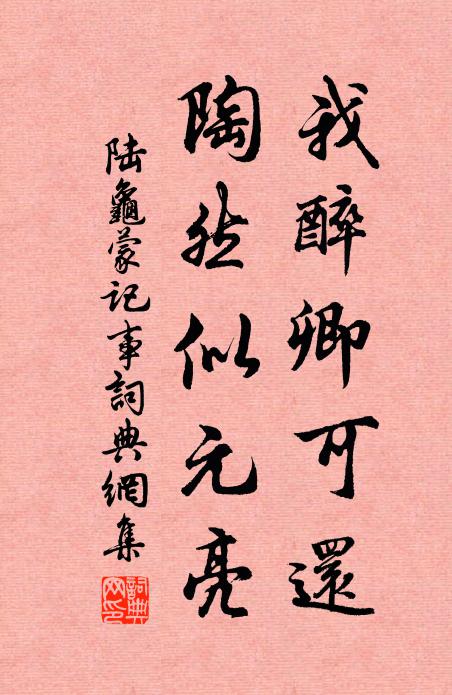 我醉卿可還
陶然似元亮
陸龜蒙記事詞典網集
詞典網印